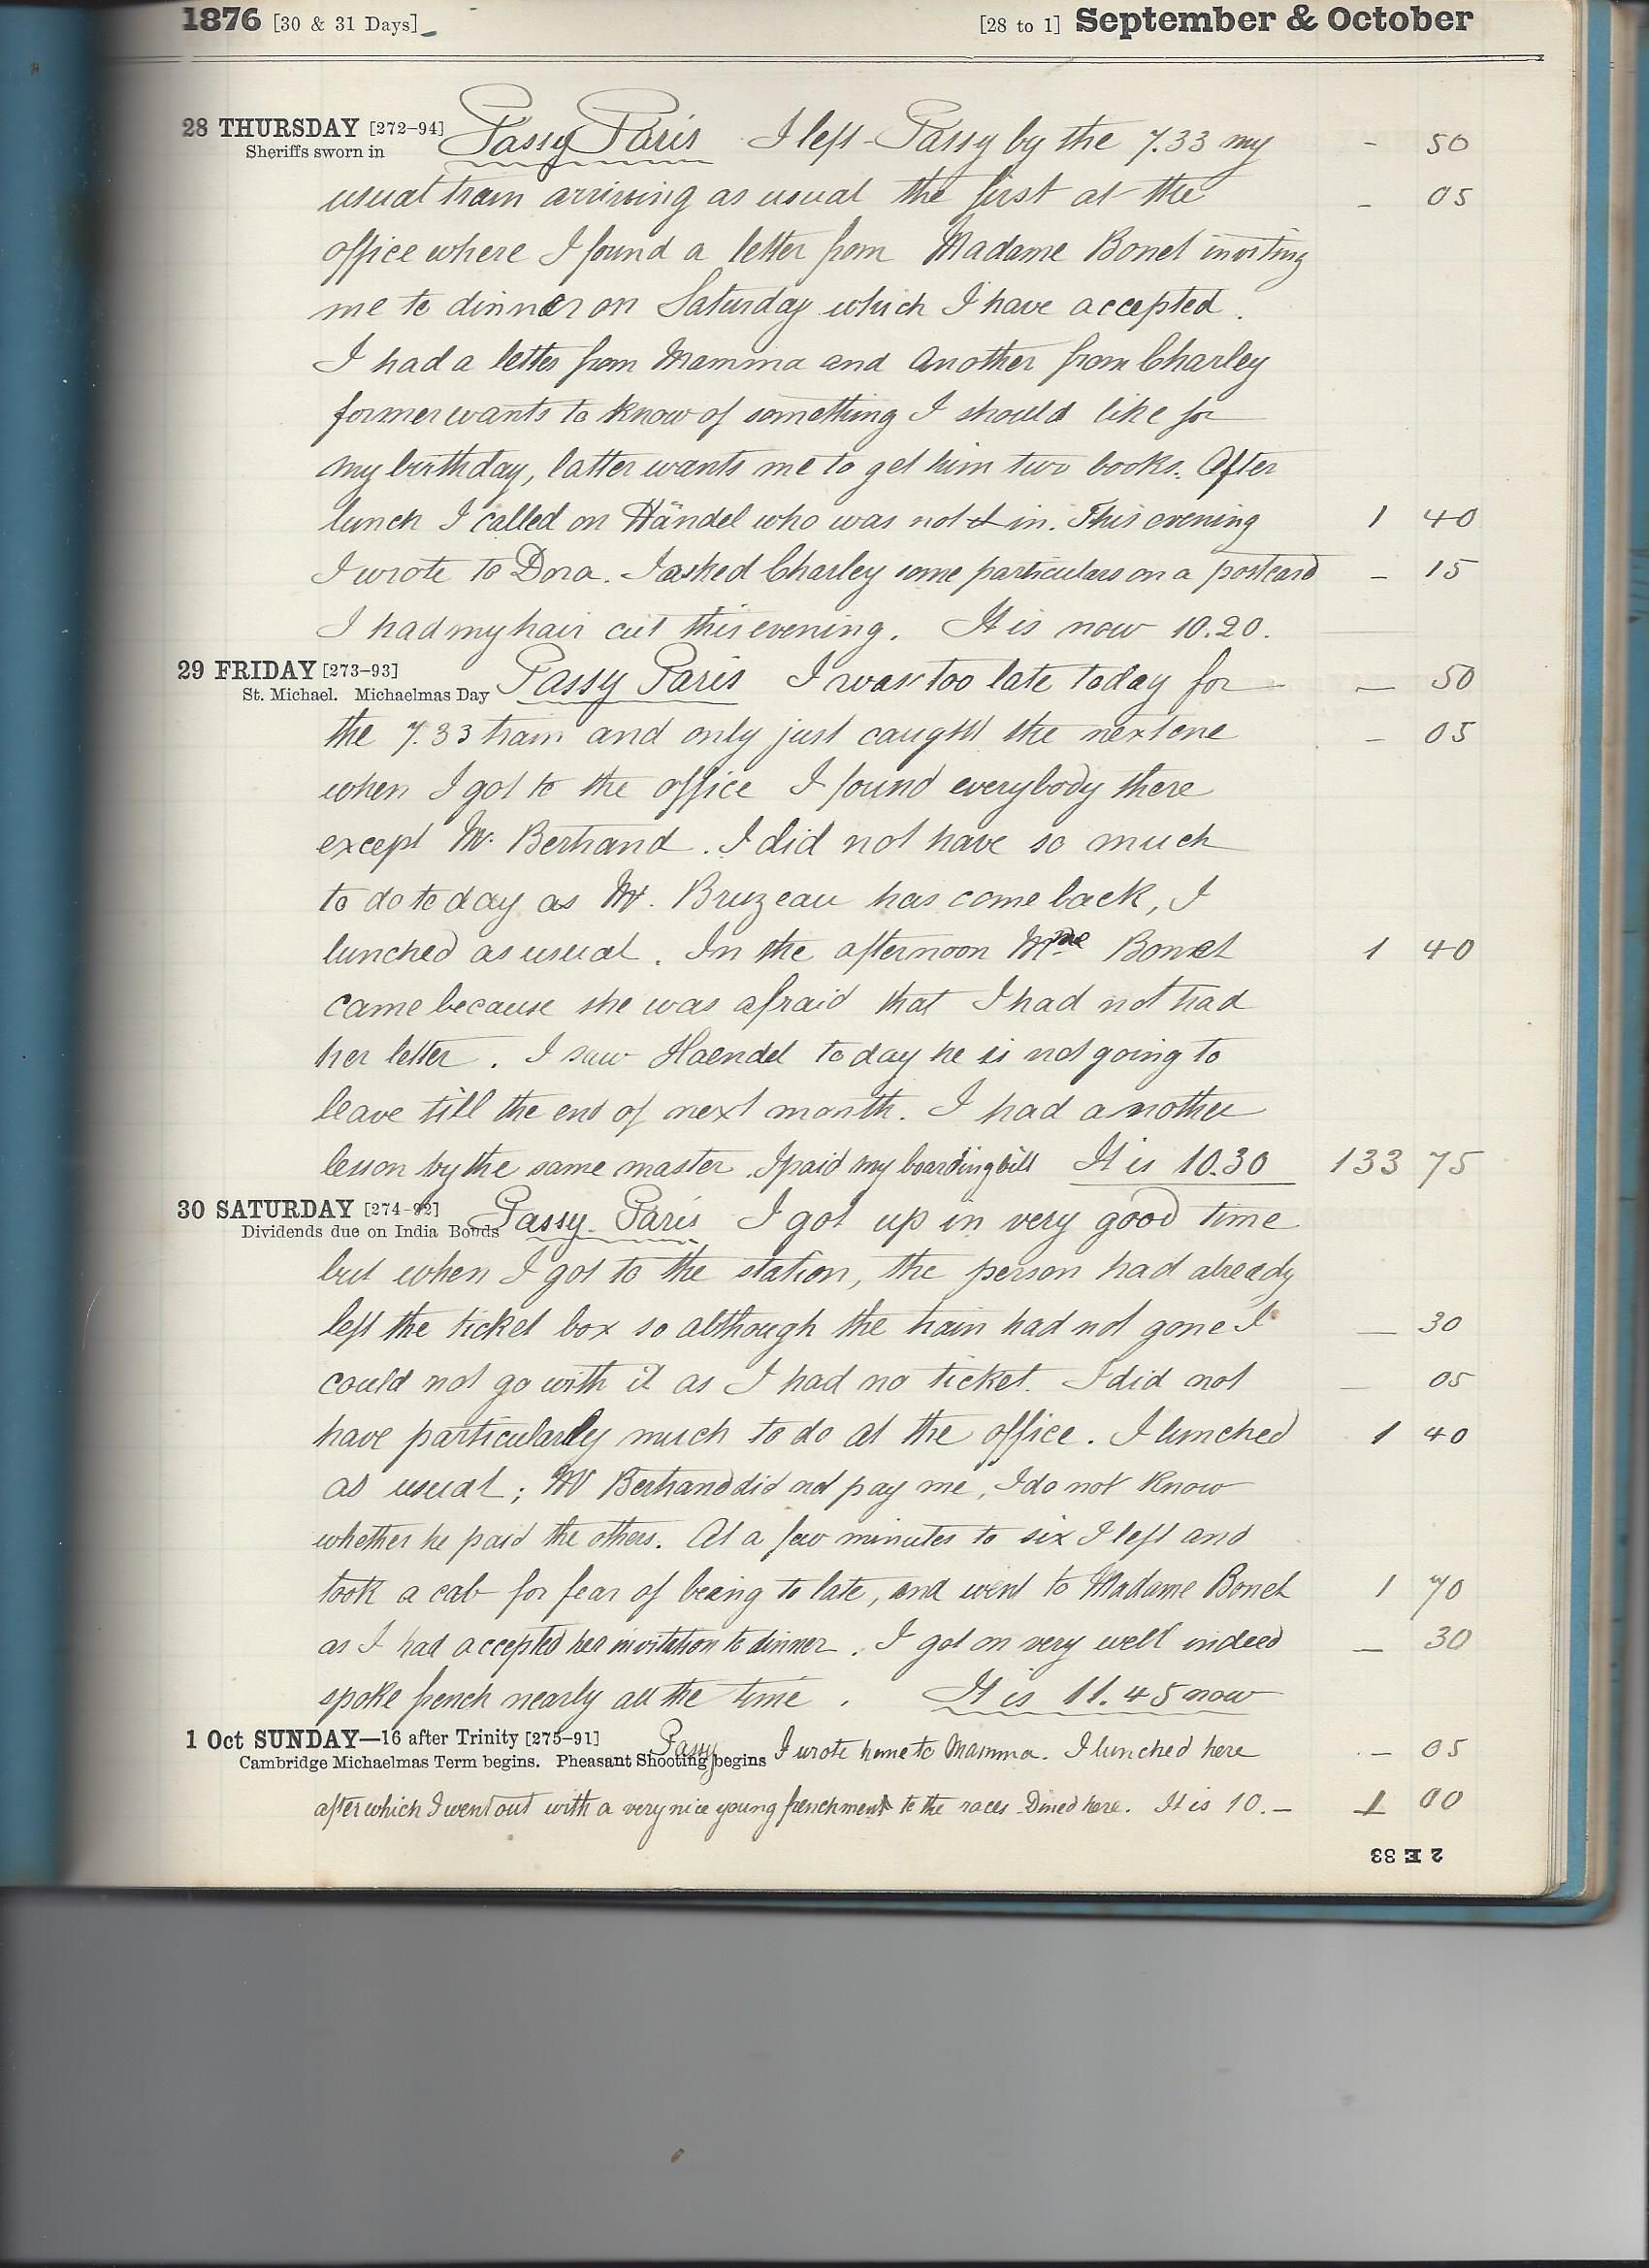 1876 [30 & 31 Days] [28 to 1] September & October
28 THURSDAY [272-94] Passy Paris I left Passy by the 7.33 my - 50
Sheriffs sworn in
usual train arriving as usual the first at the - 05
office where I found a letter from Madame Bonet inviting
me to dinner on Saturday which I have accepted.
I had a letter from Mamma and another from Charley
former wants to know of something I should like for
my birthday, latter wants me to get him two books. After
lunch I called on Händel who was not in. This evening 1 40
I wrote to Dora. I asked Charley some particulars on a postcard - 15
I had my hair cut this evening. It is now 10.20.
29 FRIDAY [273-93] Passy Paris I was too late today for — 50
St. Michael. Michaelmas Day
the 7.33 train and only just caught the next one - 05
when I got to the office I found everybody there
except Mr. Bertrand. I did not have so much
to do to day as Mr. Bruzeau has come back, I
lunched as usual. In the afternoon Mme Bonet 1 40
came because she was afraid that I had not had
her letter. I saw Haendel to day he is not going to
leave till the end of next month. I had another
lesson by the same master. I paid my boarding bill It is 10.30 133 75
30 SATURDAY [274-92] Passy Paris I got up in very good time
Dividends due on India Bonds
but when I got to the station, the person had already
left the ticket box so although the train had not gone I — 30
could not go with it as I had no ticket. I did not — 05
have particularly much to do at the office. I lunched 1 40
as usual; Mr Bertrand did not pay me, I do not know
whether he paid the others. At a few minutes to six I left and
took a cab for fear of being to late, and went to Madame Bonet 1 70
as I had accepted her invitation to dinner. I got on very well indeed — 30
spoke french nearly all the time. It is 11.45 now
1 Oct SUNDAY—16 after Trinity [275-91] Passy I wrote home to Mamma. I lunched here - 05
Cambridge Michaelmas Term begins. Pheasant Shooting begins
after which I went out with a very nice young frenchment to the races. Dined here. It is 10.— 1 00
2 E 33